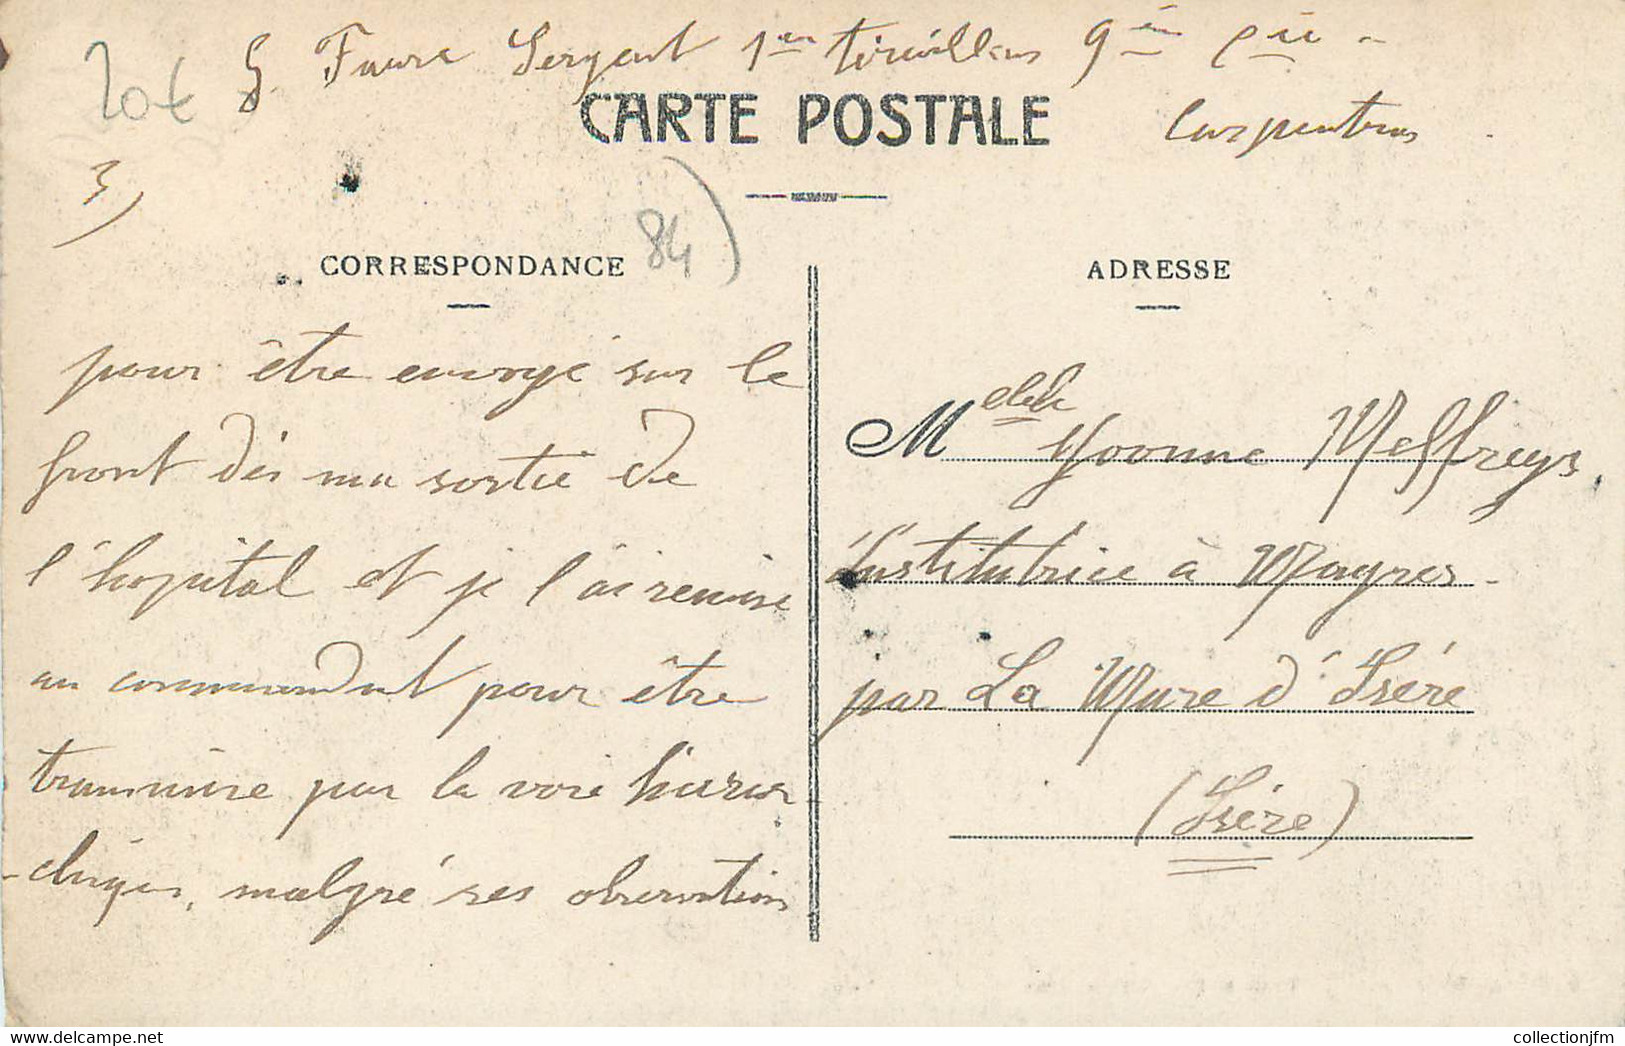 20€
G. Faure Sergent 1er tirailleurs 9ème Cie -
Carpentras
CARTE POSTALE
3)
84)
CORRESPONDANCE
pour être envoyé sur le
front dès ma sortie de
l'hopital et je l'ai remise
au commandant pour être
transmise par la voie hierar-
-chique, malgré ses observations
ADRESSE
Mdelle Yvonne Meffreys
Institutrice à Mayres -
par La Mure d'Isère
(Isère)
collectionjfm